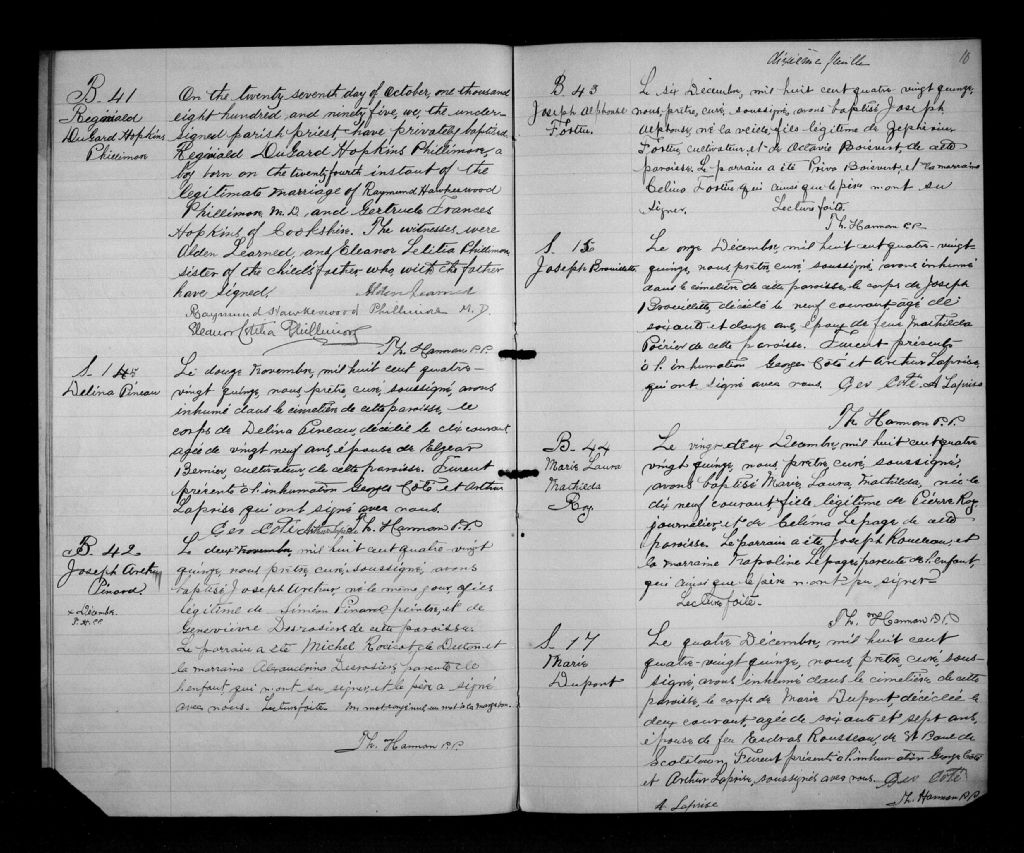 B. 41
Reginald
DuGard Hopkins
Phillimore
On the twenty seventh day of October, one thousand
eight hundred and ninety five, we, the under-
signed parish priest have privately baptised
Reginald DuGard Hopkins Phillimore, a
boy born on the twenty fourth instant of the
legitimate marriage of Raymund Hawkeswood
Phillimore M.D. and Gertrude Frances
Hopkins of Cookshire. The witnesses were
Alden Learned, and Eleanor Letitia Phillimore
sister of the child's father who with the father
have signed. Alden Learned
Raymund Hawkeswood Phillimore M.D.
Eleanor Letitia Phillimore
Th. Hannon P.P.
S. 14
Délina Pineau
Le douze Novembre, mil huit cent quatre-
vingt quinze, nous, prêtre, curé, soussigné, avons
inhumé dans le cimetière de cette paroisse, le
corps de Délina Pineau, décédée le dix courant
agée de vingt neuf ans, épouse de Elzear
Bernier, cultivateur, de cette paroisse. Furent
présents à l'inhumation Georges Coté et Arthur
Laprise qui ont signé avec nous.
Geo Coté Arthur Laprise Th. Hannon P.P.
B. 42
Joseph Arthur
Pinard
x Décembre
T. H. P.P.
Le deux Novembre, mil huit cent quatre vingt
quinze, nous prêtre, curé, soussigné, avons
baptisé Joseph Arthur né le même jour, fils
légitime de Siméon Pinard, peintre, et de
Geneviève Desrosiers de cette paroisse.
Le parrain a été Michel de et
la marraine Alexandrine Desrosiers, parents de
l'enfant qui n'ont su signer, et le père a signé
avec nous. Lecture faite. Un mot rayé nul, un mot à la marge bon.
Th. Hannon P.P.
dixième feuille
10
B. 43
Joseph Alphonse
Fortier
Le six Décembre, mil huit cent quatre-vingt quinze,
nous, prêtre, curé, soussigné, avons baptisé, Joseph
Alphonse, né la veille, fils légitime de Zéphirin
Fortier, cultivateur, et de Octavie Boisvert, de cette
paroisse. Le parrain a été Boisvert, et la marraine
Celina Fortier qui ainsi que le père n'ont su
signer. Lecture faite.
Th. Hannon P.P.
S. 15
Joseph Brouillette
Le onze Décembre, mil huit cent quatre-vingt
quinze, nous prêtre, curé soussigné avons inhumé
dans le cimetière de cette paroisse, le corps de Joseph
Brouillette, décédé le neuf courant, agé de
soixante et douze ans, époux de feue Mathilda
Poirier de cette paroisse. Furent présents
à l'inhumation Georges Coté et Arthur Laprise,
qui ont signé avec nous. Geo Coté A Laprise
Th Hannon P.P.
B. 44
Marie Laura
Mathilda
Roy
Le vingt-deux Décembre, mil huit cent quatre
vingt quinze, nous, prêtre, curé, soussigné,
avons baptisé Marie, Laura, Mathilda, née le
dix neuf courant, fille légitime de Pierre Roy
journalier, et de Celima Lepage de cette
paroisse. Le parrain a été Joseph Rousseau, et
la marraine Lepage, parents de l'enfant
qui ainsi que le père n'ont pu signer
Lecture faite.
Th. Hannon P.P.
S. 17
Marie
Dupont
Le quatre Décembre, mil huit cent
quatre-vingt quinze, nous, prêtre, curé, sous-
signé, avons inhumé dans le cimetière de cette
paroisse, le corps de Marie Dupont, décédée le
deux courant, agée de soixante et sept ans,
épouse de feu Esdras Rousseau, de St Paul de
Scotstown. Furent présents à l'inhumation George Coté
et Arthur Laprise, soussignés avec nous. Geo Coté
A Laprise
Th. Hannon P.P.